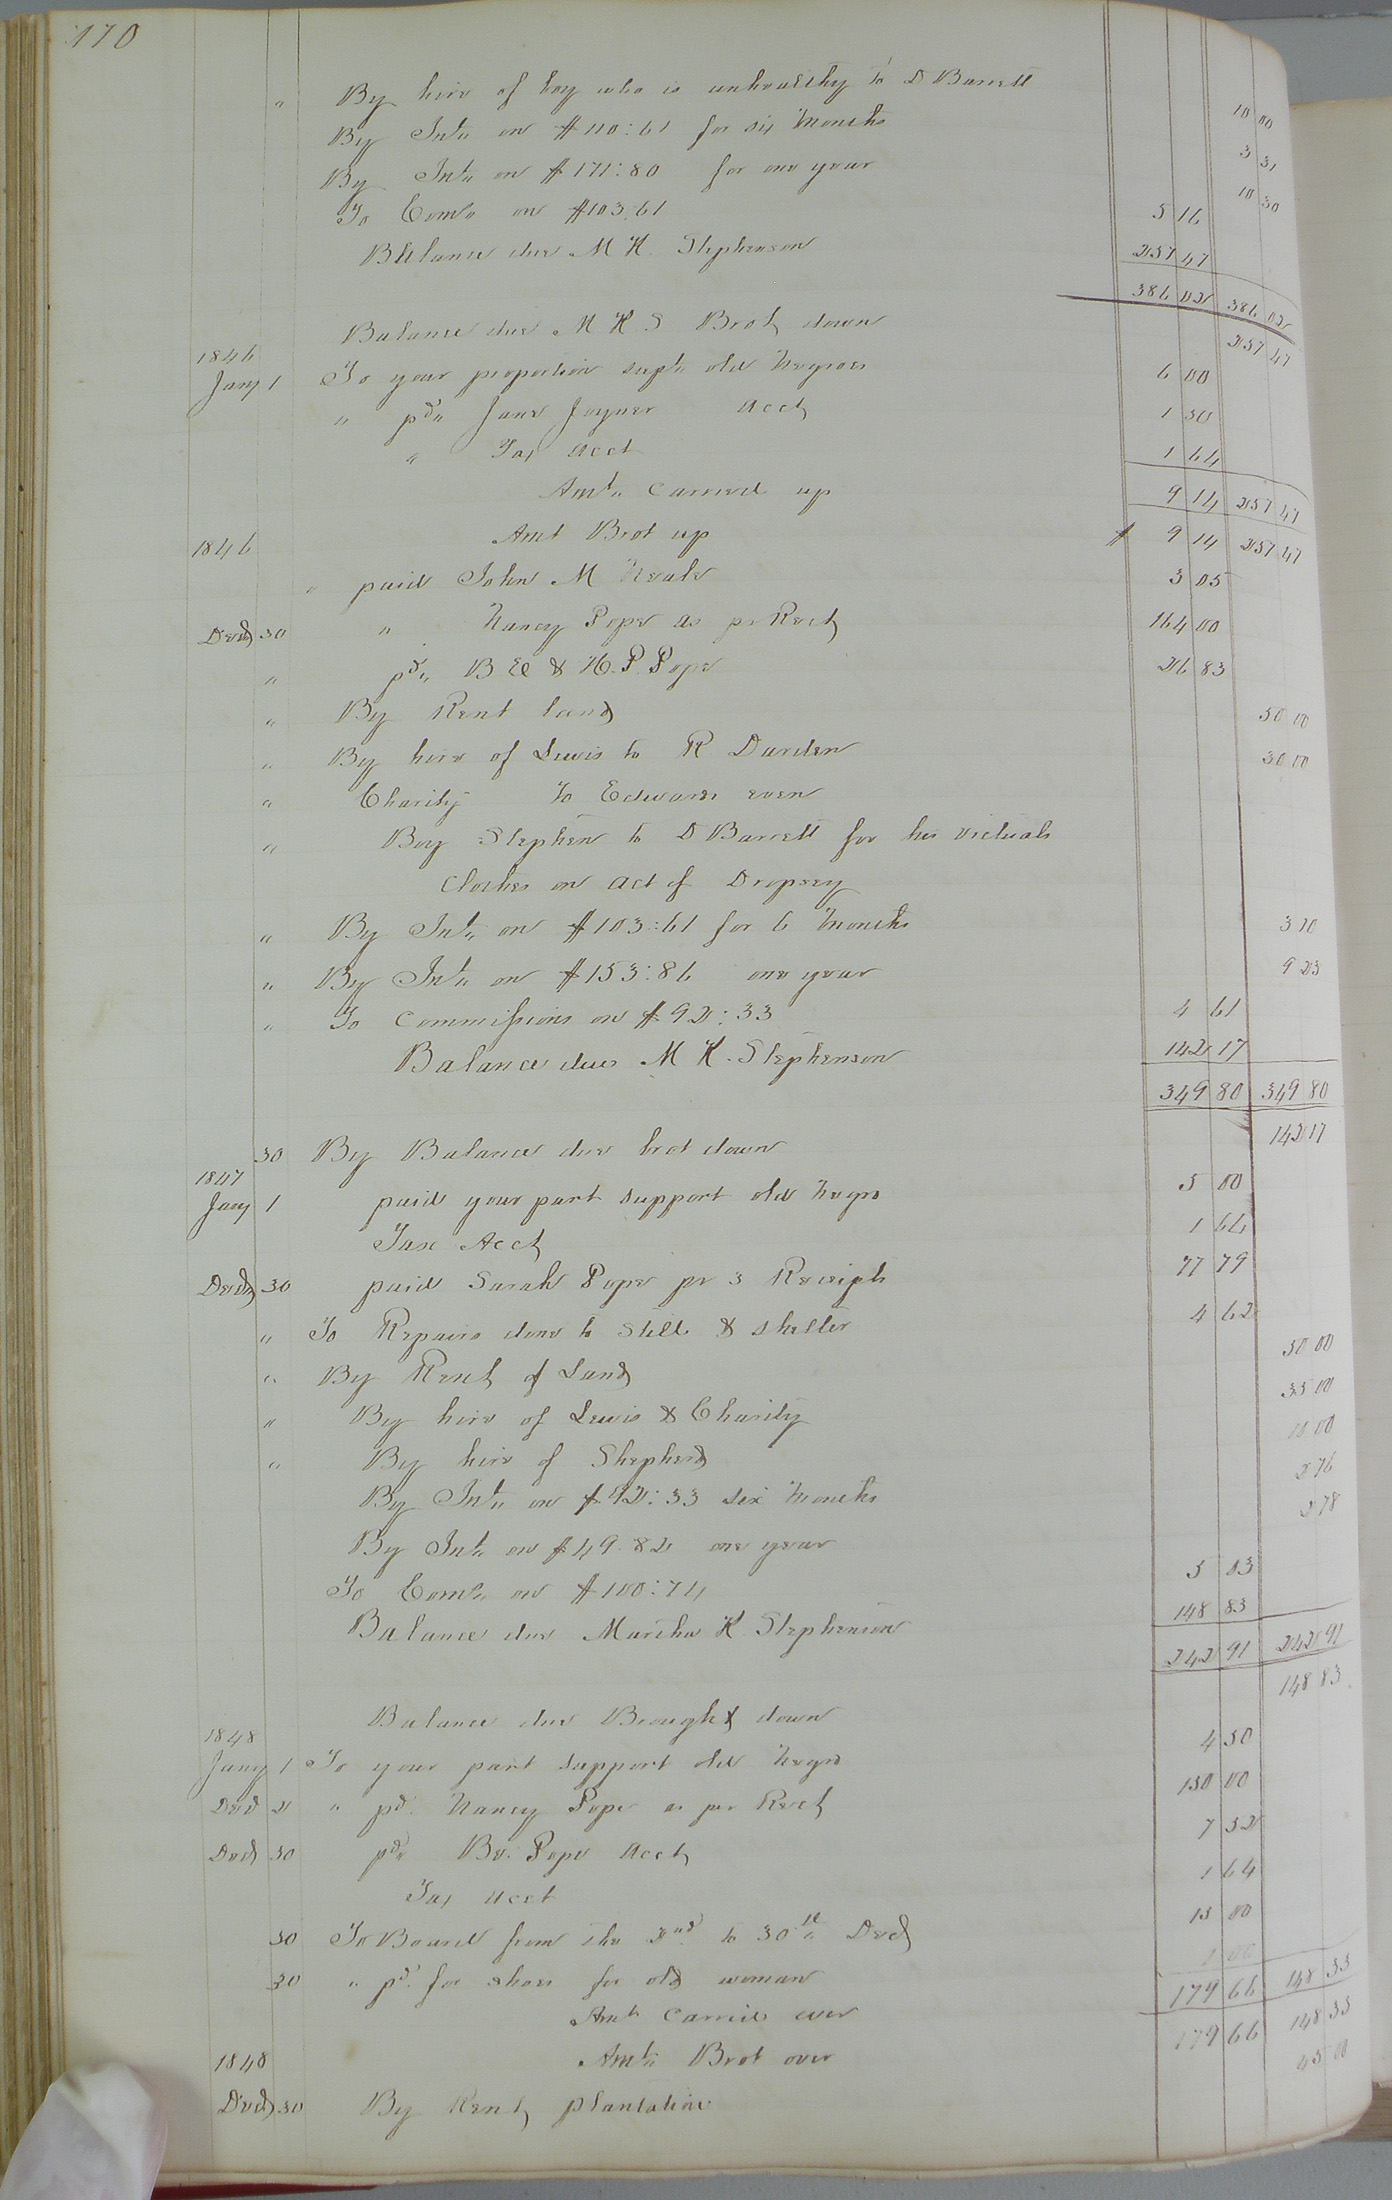 170
" By hire of boy who is unhealthy to D Barrett 10 00
By Int. on $110:61 for six Months 3 31
By Int. on $171:80 for one year 10 30
To Coms on $103.61 5 16
Balance due M K. Stephenson 257 47
386 02 386 02
Balance due M K S Brot down 257 47
1846
Jany 1 To your proportion supt. old Negroes 6 00
" pd. Jane Joyner Acct 1 50
" Tax Acct 1 64
Amt. Carried up 9 14 257 47
1846 Amt Brot up $ 9 14 257 47
" paid John M Neale 3 05
Decb 30 " Nancy Pope as pr Rect 164 00
" pd. B E & H. P. Pope 26 83
" By Rent land 50 00
" By hire of Lewis to R Darden 30 00
" Charity To Edwards even
" Boy Stephen to D Barrett for his victuals
Clothes on act of Dropsey
" By Int. on $103:61 for 6 Months 3 10
" By Int. on $153:86 one year 9 23
" To Commissions on $92:33 4 61
Balance due M K. Stephenson 142 17
349 80 349 80
30 By Balance due brot down 142 17
1847
Jany 1 paid your part support old Negro 5 00
Tax Acct 1 64
Decb 30 paid Sarah Pope pr 3 Receipts 77 79
" To Repairs done to Still & shelter 4 62
" By Rent of Land 50 00
" By hire of Lewis & Charity 35 00
" By hire of Shepherd 10 00
By Int. on $92:33 six Months 2 76
By Int. on $49.82 one year 2 78
To Coms. on $100:74 5 03
Balance due Martha K. Stephenson 148 83
242 91 242 91
Balance due Brought down 148 83
1848
Jany 1 To your part support old Negro 4 50
Decb 2 " pd. Nancy Pope as per Rect 150 00
Decb 30 pd. Bo. Pope Acct 7 52
Tax Acct 1 64
30 To Board from the 2nd. to 30th. Decb 15 00
30 " pd. for shoes for old woman 1 00
Amt Carried over 179 66 148 33
1848 Amt. Brot over 179 66 148 33
Decb 30 By Rent plantation 45 00